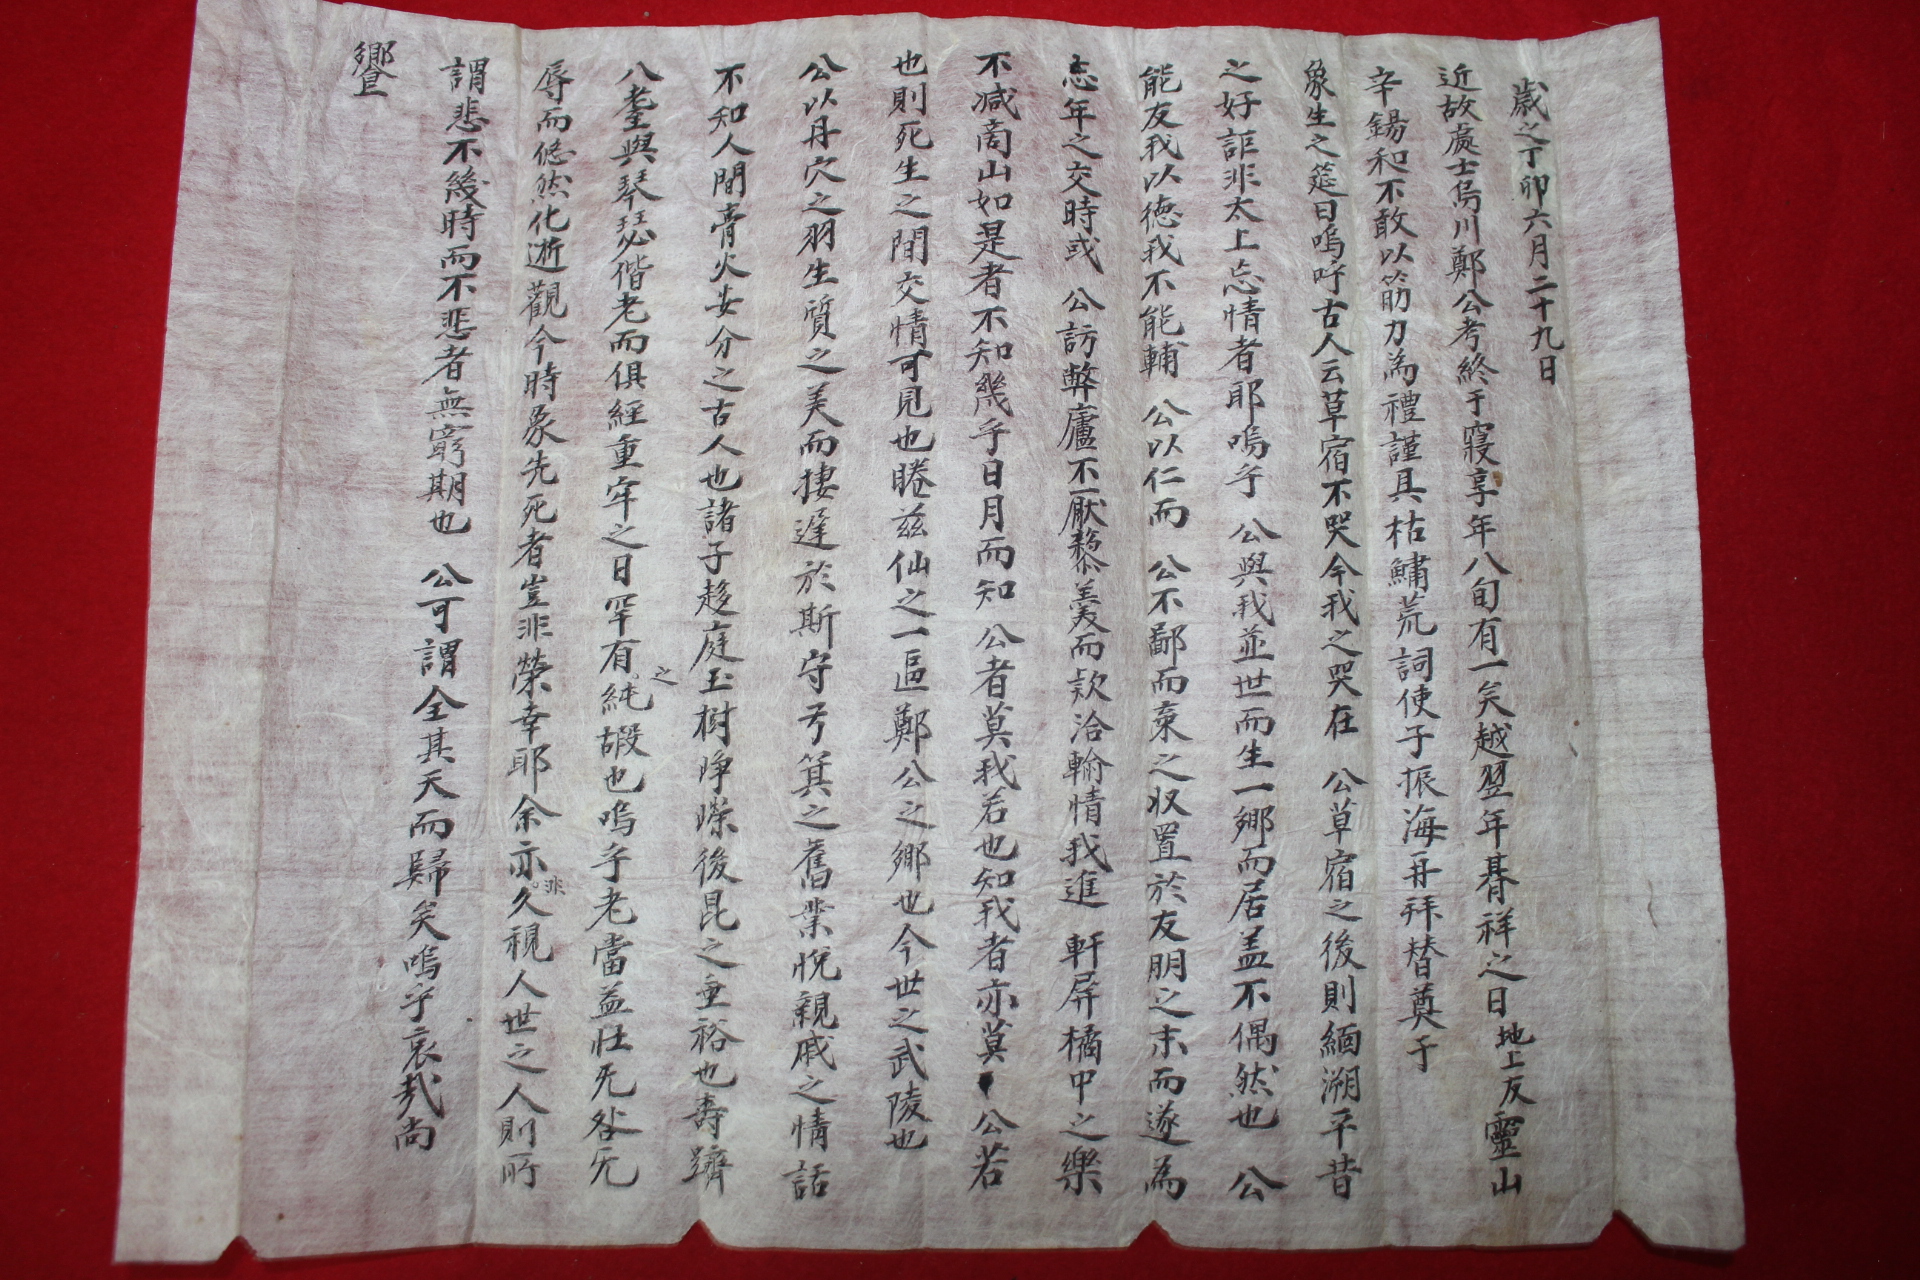 歲之丁卯六月二十九日
近故處士烏川鄭公考終于寢享年八旬有一矣越翌年朞祥之日地上友靈山
辛錫和不敢以筋力爲禮謹具枯鱐荒詞使子振海再拜替奠于
象生之筵曰嗚呼古人云草宿不哭今我之哭在 公草宿之後則緬溯平昔
之好詎非太上忘情者耶嗚乎 公與我並世而生一鄕而居盖不偶然也 公
能友我以德我不能輔 公以仁而 公不鄙而棄之収置於友朋之末而遂爲
忘年之交時或 公訪弊廬不厭藜羹而款洽輸情我進 軒屛橘中之樂
不减商山如是者不知幾乎日月而知 公者莫我若也知我者亦莫 公若
也則死生之間交情可見也睠玆仙之一區鄭公之鄕也今世之武陵也
公以丹穴之羽生質之美而捿遲於斯守弓箕之舊業悅親戚之情話
不知人間膏火安分之古人也諸子趍庭玉樹崢嶸後昆之垂裕也壽躋
八耋與琴瑟偕老而俱經重牢之日罕有之純嘏也嗚乎老當益壯无咎无
辱而悠然化逝觀今時象先死者豈非榮幸耶余亦非久視人世之人則所
謂悲不幾時而不悲者無窮期也 公可謂全其天而歸矣嗚乎哀哉尙
饗